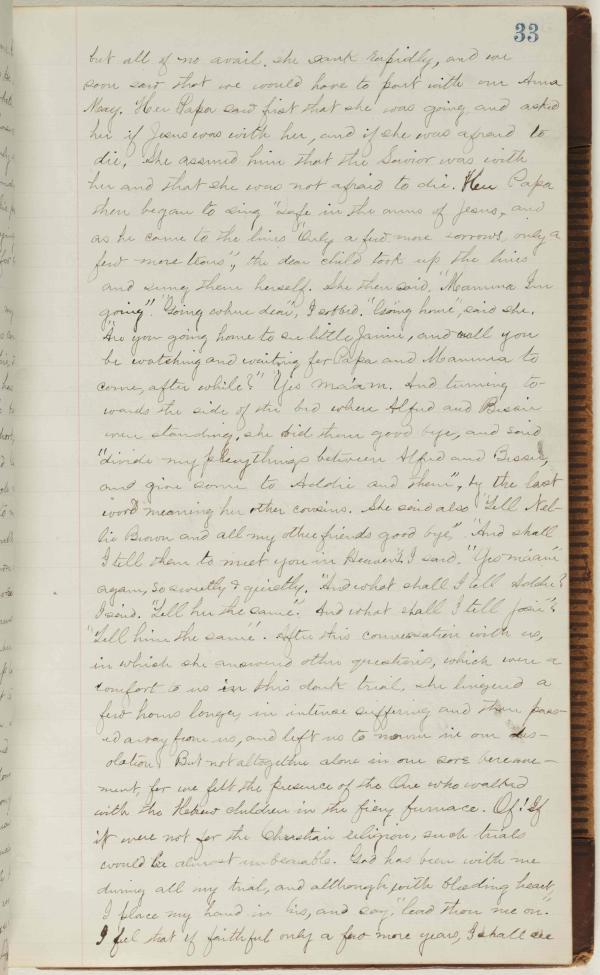 33
but all of no avail. she sank rapidly, and we
soon saw that we would have to part with our Anna
Mary. Her Papa saw first that she was going and asked
her if Jesus was with her, and if she was afraid to
die. She assured him that the Savior was with
her and that she was not afraid to die. Her Papa
then began to sing "Safe in the arms of Jesus, and
as he came to the lines "Only a few more sorrows, only a
few more tears", the dear child took up the lines
and sung them herself. She then said, "Mamma I'm
going". "Going where dear", I sobbed. "Going home", said she.
"Are you going home to see little Jamie, and will you
be watching and waiting for Papa and Mamma to
come, after while?" "Yes ma'am. And turning to-
wards the side of the bed where Alfred and Bessie
were standing, she bid them good bye, and said
"divide my playthings between Alfred and Bessie,
and give some to Addie and them", by the last
word meaning her other cousins. She said also "Tell Nel-
lie Brown and all my other friends good bye." "And shall
I tell them to meet you in Heaven", I said. "Yes ma'am"
again, so sweetly & quietly. "And what shall I tell Addie?
I said. "Tell her the same". And what shall I tell Josie"?
"Tell him the same". After this conversation with us,
in which she answered other questions, which were a
comfort to us in this dark trial, she lingered a
few hours longer, in intense suffering and then pass-
ed away from us, and left us to mourn in our des-
olation. But not altogether alone in our sore bereave-
ment, for we felt the presence of the One who walked
with the Hebrew children in the fiery furnace. Oh! If
it were not for the Christian religion, such trials
would be almost unbearable. God has been with me
during all my trial, and although with bleeding heart,
I place my hand in his, and say, "lead thou me on."
I feel that if faithful only a few more years, I shall see